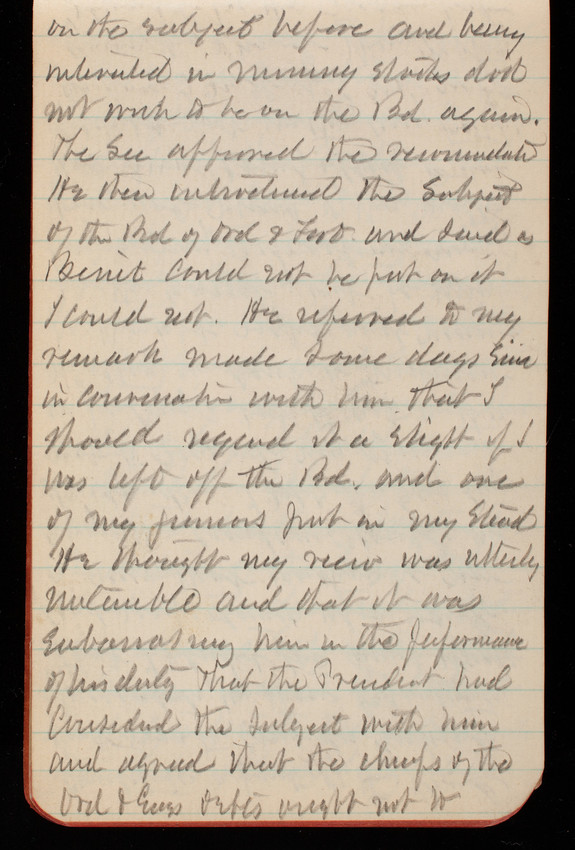 on the subject before and being
interested in mining stocks did
not wish to be on the Bd. again.
The Sec approved the
He then introduced the subject
of the Bd of Ord & Fort. and said as
Benét could not be put on it
I could not. He referred to my
remark made some days since
in conversation with him that I
should regard it a slight if I
was left off the Bd. and one
of my juniors put in my stead
He thought my view was utterly
untenable and that it was
embarrassing him in the performance
of his duty That the President had
considered the subject with him
and agreed that the chiefs of the
Ord & Engs Depts ought not to